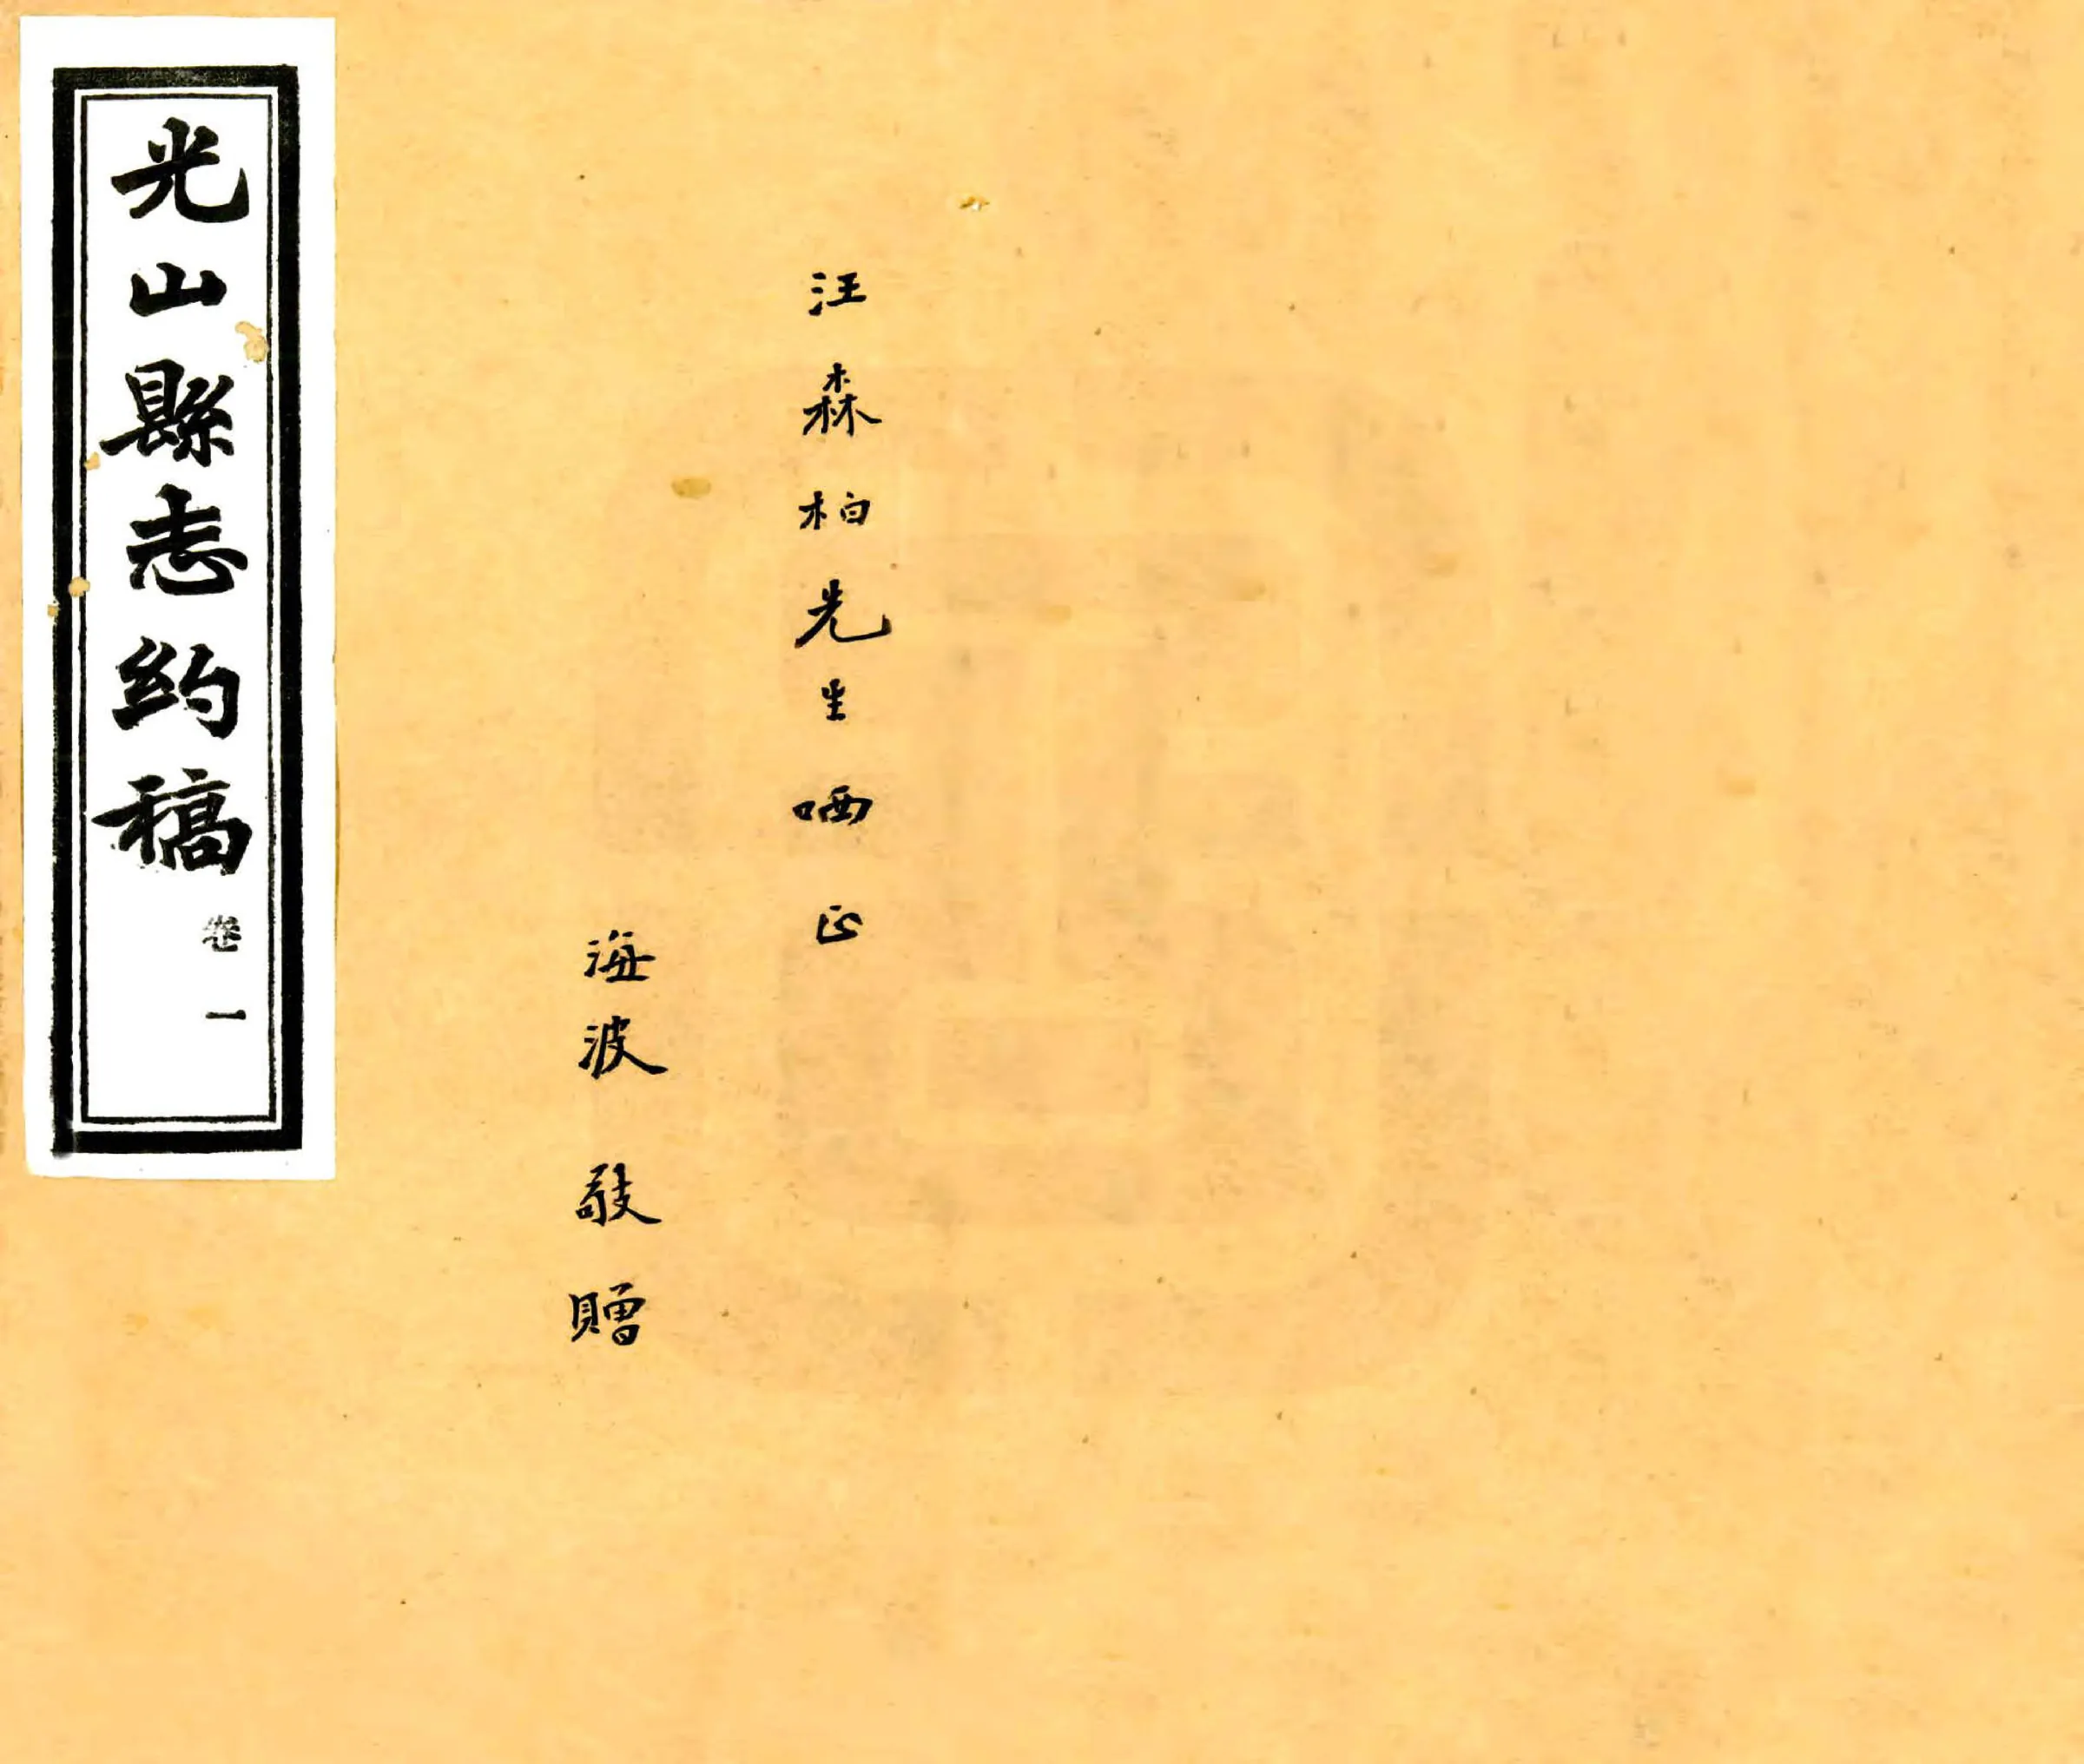 汪森柏先生哂正
海波敬贈
光山縣志約稿
卷一